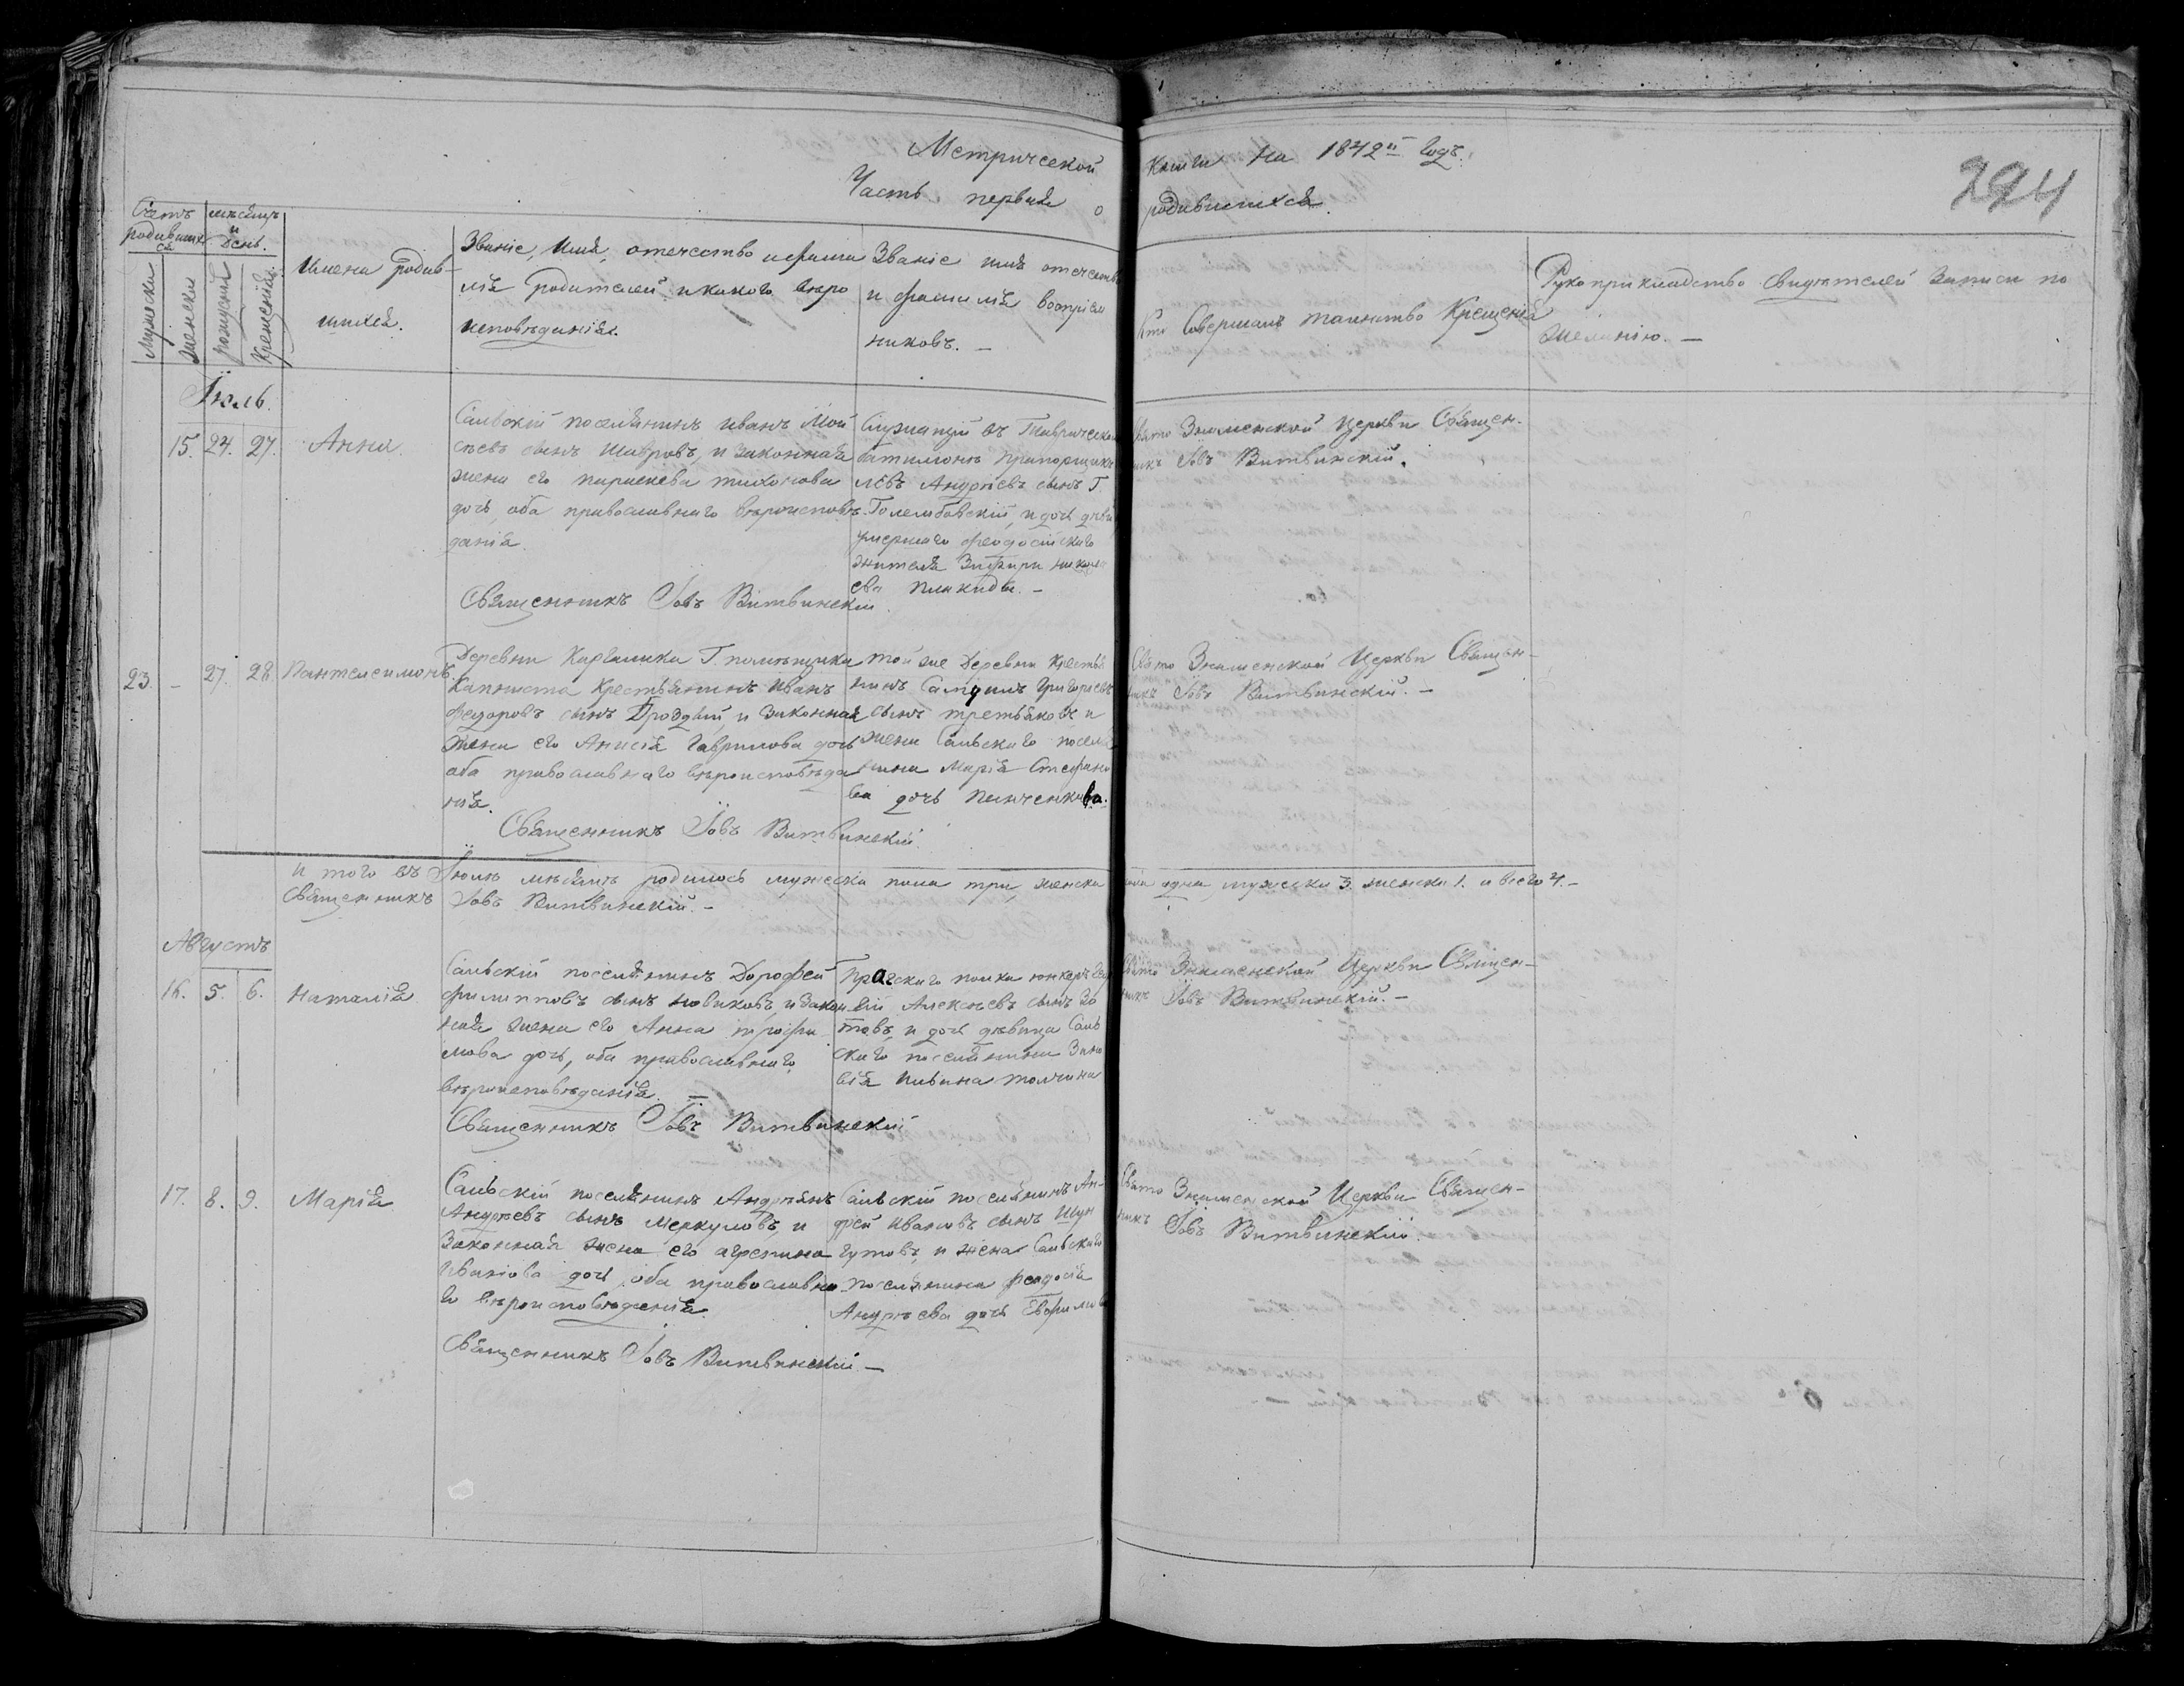 Метрической книги на 1842й годъ.
Часть первая о родившихся.
294
Счетъ родившихся
мѣсяцъ и день.
Мужеска
Женска
рожденія
Крещенія
Имена родив-
шихся.
Званіе, имя, отечество и фами
лія родителей и какого вѣро
исповѣданія.
Званіе имя отечество
и фамилія воспріем
никовъ. —
Кто Совершалъ таинство Крещенія
Рукоприкладство свидѣтелей записи по
желанію. —
Іюль.
15. 24. 27. Анна.
Сальскій поселянинъ иванъ Мой
сѣевъ сынъ Шавровъ, и законная
жена его параскева тихонова
дочь, оба православнаго вѣроисповѣ
данія.
Священникъ Іовъ Витвинскій.
Служащій въ Таврическом
баталіонѣ прапорщикъ
Левъ Андреевъ сынъ Г.
Голембовскій, и дочь
умершаго феодосійскаго
жителя
Плакиды. —
Свято Знаменской Церкви Священ-
никъ Іовъ Витвинскій.
23. — 27. 28. Пантелеимонъ.
Деревни Г. помѣщика
Капниста Крестьянинъ иванъ
федоровъ сынъ Дроздый, и законная
жена его Анисія Гаврилова дочь
оба православнаго вѣроисповѣда
нія.
Священникъ Іовъ Витвинскій.
той же Деревни Крестья
нинъ Самуилъ Григорьевъ
сынъ третьяковъ и
жена Сальскаго поселя
нина Марія Стефано
ва дочь
Свято Знаменской Церкви Священ-
никъ Іовъ Витвинскій. —
И того въ Іюлѣ мѣсяцѣ родилось мужеска пола три, женска пола одна, мужеска 3. женска 1. а всего 4. —
Священникъ Іовъ Витвинскій. —
Августъ
16. 5. 6. Наталія
Сальскій поселянинъ Дорофей
филипповъ сынъ новиковъ, и закон
ная жена его Анна трофи
мова дочь, оба православнаго
вѣроисповѣданія. —
Священникъ Іовъ Витвинскій
Пражскаго полка юнкеръ
Алексѣевъ сынъ
и дочь девица Саль
скаго поселянина Зино
вія
Свято Знаменской Церкви Священ-
никъ Іовъ Витвинскій. —
17. 8. 9. Марія
Сальскій поселянинъ Андреянъ
Андреевъ сынъ Меркуловъ, и
Законная жена его агрепина
Иванова дочь, оба православна
го вѣроисповѣданія.
Священникъ Іовъ Витвинскій. —
Сальскій поселянинъ Ан-
дрей Ивановъ сынъ Шун
гутовъ, и жена Сальскаго
поселянина феодосія
Андреева дочь
Свято Знаменской Церкви Священ-
никъ Іовъ Витвинскій.